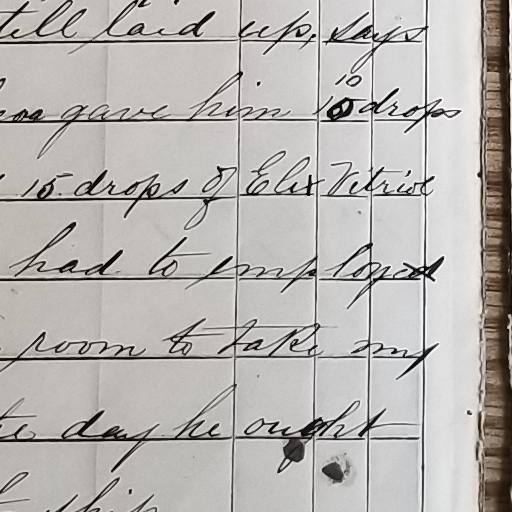 still laid up, says
gave him 10 drops
15 drops of Elix Vitriol
had to employ
room to take my
day he ought
ship